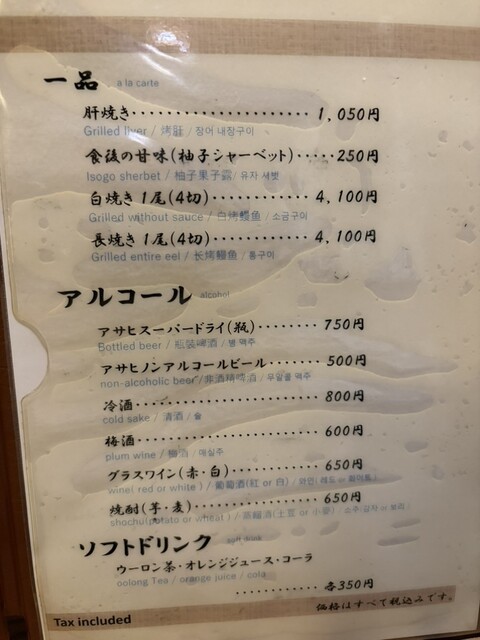 一品 a la carte
肝焼き・・・・・・・・・・・・・・・・・・・・1,050円
Grilled liver / 烤肝 / 장어 내장구이
食後の甘味(柚子シャーベット)・・・・・250円
Isogo sherbet / 柚子果子露 / 유자 샤벳
白焼き1尾(4切)・・・・・・・・・・・・4,100円
Grilled without sauce / 白烤鳗鱼 / 소금구이
長焼き1尾(4切)・・・・・・・・・・・・4,100円
Grilled entire eel / 长烤鳗鱼 / 통구이
アルコール alcohol
アサヒスーパードライ(瓶)・・・・・・・・750円
Bottled beer / 瓶装啤酒 / 병 맥주
アサヒノンアルコールビール・・・・・・・500円
non-alcoholic beer / 非酒精啤酒 / 무알콜 맥주
冷酒・・・・・・・・・・・・・・・・・・・・・・・・800円
cold sake / 清酒 / 술
梅酒・・・・・・・・・・・・・・・・・・・・・・・・600円
plum wine / 梅酒 / 매실주
グラスワイン(赤・白)・・・・・・・・・・・650円
wine( red or white ) / 葡萄酒(紅 or 白) / 와인( 레드 or 화이트 )
焼酎(芋・麦)・・・・・・・・・・・・・・・・・650円
shochu(potato or wheat ) / 燒酒(土豆 or 小麥) / 소주(감자 or 보리)
ソフトドリンク soft drink
ウーロン茶・オレンジジュース・コーラ
oolong Tea / orange juice / cola
・・・・・・・・・・・・各350円
価格はすべて税込みです。
Tax included